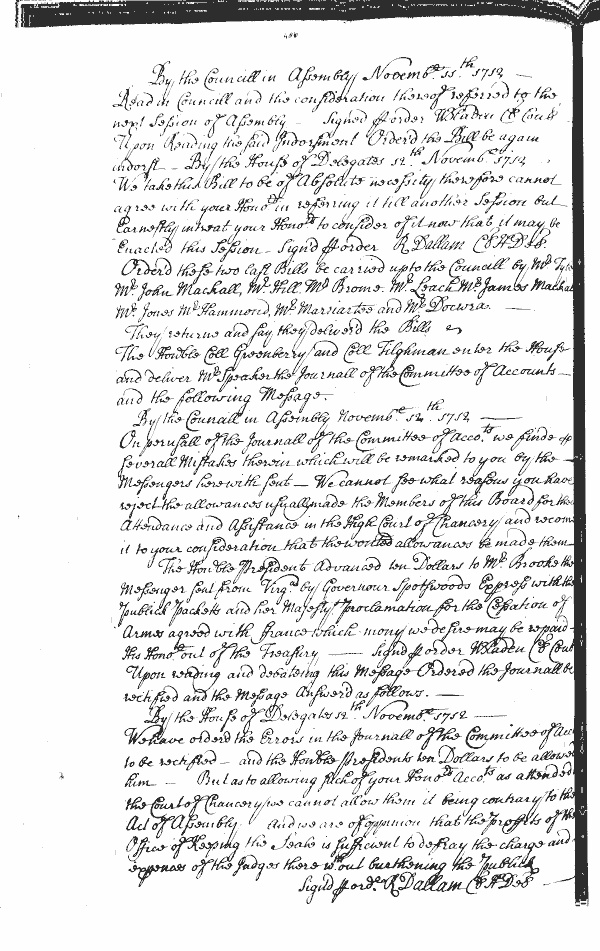 By the Councill in Assembly Novemb.r 11.th 1712 —
Read in Councill and the consideration thereof referred to the
next Session of Assembly — Signed p order WBladen Cl Coun
Upon Reading the said Indorsment Orderd the Bill be again
indorst — By the House of Delegates 12.th Novemb.r 1712
We take this Bill to be of Absolute necessity therefore cannot
agree with your Hono.rs in referring it till another Session but
Earnestly intreat your Hono.rs to consider of it now that it may be
Enacted this Session Signd p order R Dallam Cl H Del.
Orderd these two last Bills be carried up to the Councill by M.r
M.r John Mackall, M.r Hill M.r Brome M.r Leach M.r James Mackal
M.r Jones M.r Hammond, M.r Marsiartee and M.r Docwra. —
They returne and say they deliverd the Bills
The Honble Coll Greenberry and Coll Tilghman enter the House
and deliver M.r Speaker the Journall of the Committee of Accounts —
and the following Message. —
By the Councill in Assembly Novemb.r 12.th 1712 —
On perusall of the Journall of the Committee of Acco.ts we finde
severall Mistakes therein which will be remarked to you by the —
Messengers herewith sent — We cannot see what reasons you have
reject the allowances usually made the Members of this Board for the
Attendance and Assistance in the High Court of Chancery and recom
it to your consideration that the wonted allowances be made them —
The Honble President Advanced ten Dollars to M.r Brooke the
Messenger sent from Virg.a by Governour Spotswoods Express with the
publick Packetts and her Majestys Proclamation for the Cessation of
Armes agreed with france which mony we desire may be repaid —
His Hono.r out of the Treasury — Signd p order WBladen Cl Coun
Upon reading and debateing this Message Ordered the Journall be
rectified and the Message Answerd as follows. —
By the House of Delegates 12.th Novemb.r 1712 —
We have orderd the Errors in the Journall of the Committee of Acc
to be rectified — and the Honble Presidents ten Dollars to be allowed
him — But as to allowing such of your Hono.rs Acco.ts as attended
the Court of Chancery we cannot allow them it being contrary to the
Act of Assembly. and we are of oppinion that the proffits of the
Office of Keeping the Seale is sufficient to defray the charge and
expences of the Judges there w.out burthening the Publick
Signd p ord.r R Dallam Cl H Del